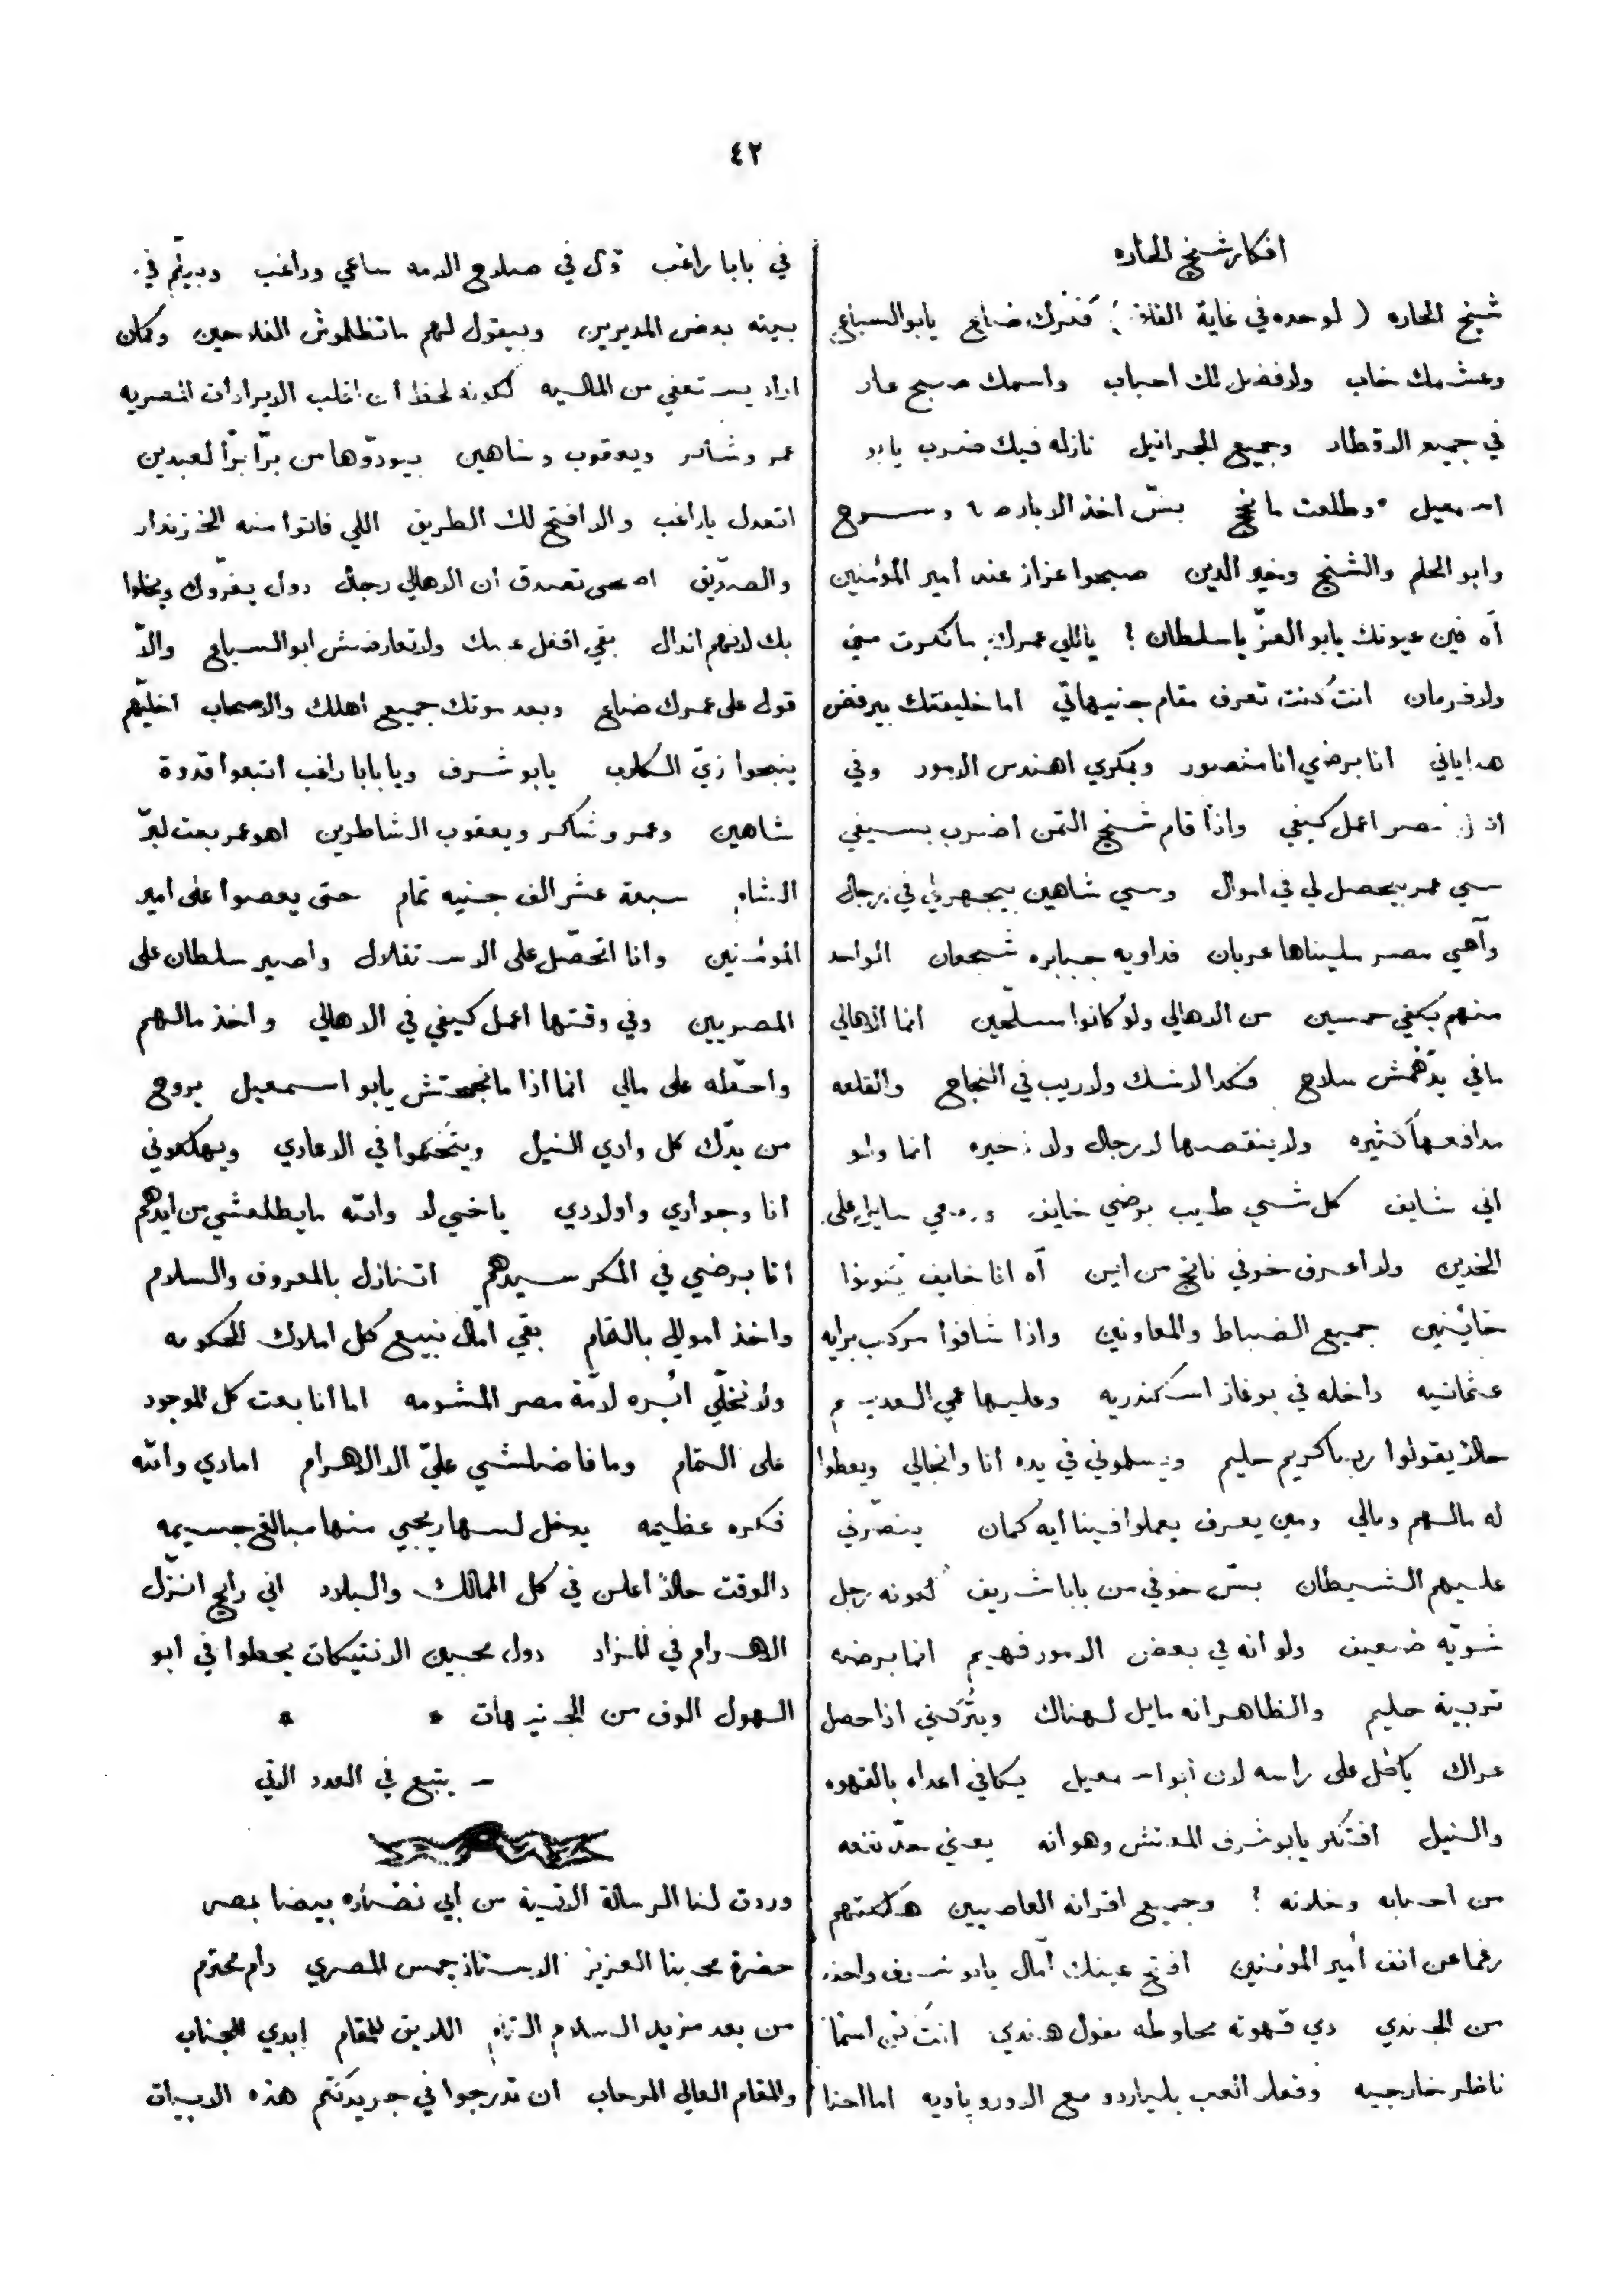 ٤٢
افكار شيخ الحاره
شيخ الحاره (لوحده في غاية القلق) فنرك ضاع يابو السباع
وعشمك خاب ولا فضل لك احباب واسمك صبح عار
في جميع الاقطار وجميع الجرانيل نازله فيك ضرب يابو
اسمعيل وطلعت مانخ بسّ اخذ الاباره وسروح
وابو الحلم والشيخ وخير الدين صبحوا عزاز عند امير المؤمنين
آه فين عيونك يابو العزّ ياسلطان ! ياللي عمرك ما نكرت مني
ولا فرمان انت كنت تعرف مقام جنيهاتي اما خليفتك بيرفض
هداياتي انا برضي انا منصور وبمكري اهندس الامور وفي
مصر اعمل كيفي واذا قام شيخ التمن اضرب بسيفي
سي عمر بيحصل لي في اموال وسي شاهين بيجهز لي في رجال
وآهي مصر مليناها عربان فداويه جبابره شجعان الواحد
منهم يكفي خمسين من الاهالي ولو كانوا مسلحين انما الاهالي
مافي يدهمش سلاح فكدا لا شك ولا ريب في النجاح والقلعه
مدافعها كثيره ولا ينقصها لا رجال ولا ذخيره انما ولو
اني شايف كل شي طيب برضي خايف ودمعي سايل على
الخدين ولا اعرف خوفي ناتج من اين آه انا خايف يكونوا
خائينين جميع الضباط والمعاونين واذا شافوا مركب برايه
عثمانيه داخله في بوغاز اسكندريه وعليها عمي العديم
حالاً يقولوا رب ياكريم حليم ويسلموني في يده انا وانجالي ويعطوا
له مالهم ومالي ومين يعرف يعملوا فينا ايه كمان ينصرني
عليهم الشيطان بسّ خوفي من بابا شريف لكونه رجل
شويّه ضعيف ولو انه في بعض الامور فهيم انما برضه
تربية حليم والظاهر انه مايل لهناك ويتركني اذا حصل
عراك ياكل على راسه لان ابو اسمعيل يكافي اعداه بالقهوه
والنيل افتكر يابو شرف المفتش وهوانه يعني حدّ نفعه
من احبابه وخلانه ؟ وجميع اقرانه العاصيين هلكتهم
رغما عن انف امير المؤمنين افتح عينك آمال يابو شريف واحذر
من الجندي دي قهوته مخلوطه بفول هندي انت اسما
ناظر خارجيه وفعلا العب بلياردو مع الاوروباويه اما احنا
في بابا راغب قال في صلاح الامه ساعي وراغب وبيلم في
بيته بعض المديرين وبيقول لهم ماتظلموش الفلاحين وكمان
اراد يستعفي من الماليه لكونه لحظ ان اغلب الايرادات المصريه
عمر وشاكر ويعقوب وشاهين بيودّوها من برّا برّا لعبدين
اتعدل ياراغب والا افتح لك الطريق اللي فاتوا منه الخزندار
والصدّيق اصحى تصدق ان الاهالي رجال دول يغرّوك ويخلوا
بك لانهم اندال بقى اقفل عينك ولا تعارضش ابو السباع والاّ
قول على عمرك ضاع وبعد موتك جميع اهلك والاصحاب اخليهم
ينبحوا زيّ الكلاب يابو شرف ويا بابا راغب اتبعوا قدوة
شاهين وعمر وشاكر ويعقوب الشاطرين اهو عمر بعت لبرّ
الشام سبعة عشر الف جنيه تمام حتى يعصوا على امير
المؤمنين وانا اتحصّل على الاستقلال واصير سلطان على
المصريين وفي وقتها اعمل كيفي في الاهالي واخذ مالهم
واحطه على مالي انما اذا مانجحتش يابو اسمعيل يروح
من يدّك كل وادي النيل ويتحكموا في الاعادي ويهلكوني
انا وجواري واولادي ياخي لا والله مايطلعشي من ايدهم
انا برضي في المكر سيدهم اتنازل بالمعروف والسلام
واخذ اموالي بالتمام بقى امّال نبيع كل املاك الحكومه
ولا نخلّي ابره لامّة مصر المشومه اما انا بعت كل الموجود
على التمام وما فاضلشي عليّ الا الاهرام اما دي والله
فكره عظيمه يدخل لها ويجي منها مبالغ جسيمه
دالوقت حالاً اعلن في كل الممالك والبلاد اني رايح انزّل
الاهرام في المزاد دول محبين الانتيكات يحطوا في ابو
الهول الوف من الجنيهات * *
— يتبع في العدد الاتي
وردت لنا الرسالة الاتية من أبي نضاره بيضا بمصر
حضرة محبنا العزيز الاستاذ جمس المصري دام محترم
من بعد مزيد السلام التام اللايق للمقام ابدي للجناب
والمقام العالي المرحاب ان تدرجوا في جريدتكم هذه الابيات